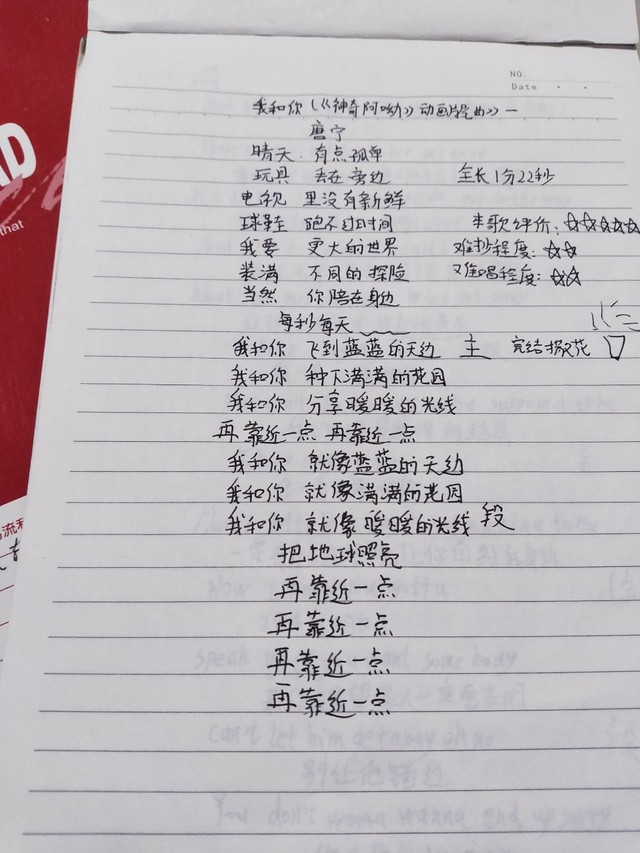 NO.
Date
我和你《《神奇阿呦》动画片曲》一
唐宁
晴天 有点孤单
玩具 丢在旁边 全长1分22秒
电视 里没有新鲜
球鞋 跑不过时间 本歌评价:☆☆☆☆☆
我要 更大的世界 难抄程度:☆☆
装满 不同的探险 难唱程度:☆☆
当然 你陪在身边
每秒每天
我和你 飞到蓝蓝的天边 主 完结撒花
我和你 种下满满的花园
我和你 分享暖暖的光线
再靠近一点 再靠近一点
我和你 就像蓝蓝的天边
我和你 就像满满的花园
我和你 就像暖暖的光线 段
把地球照亮
再靠近一点
再靠近一点
再靠近一点
再靠近一点
that